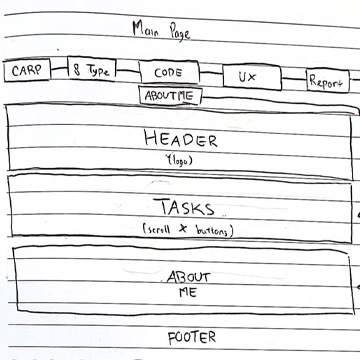 Main Page
CARP & Type CODE UX Report
ABOUT ME
HEADER
(logo)
TASKS
(scroll X buttons)
ABOUT
ME
FOOTER